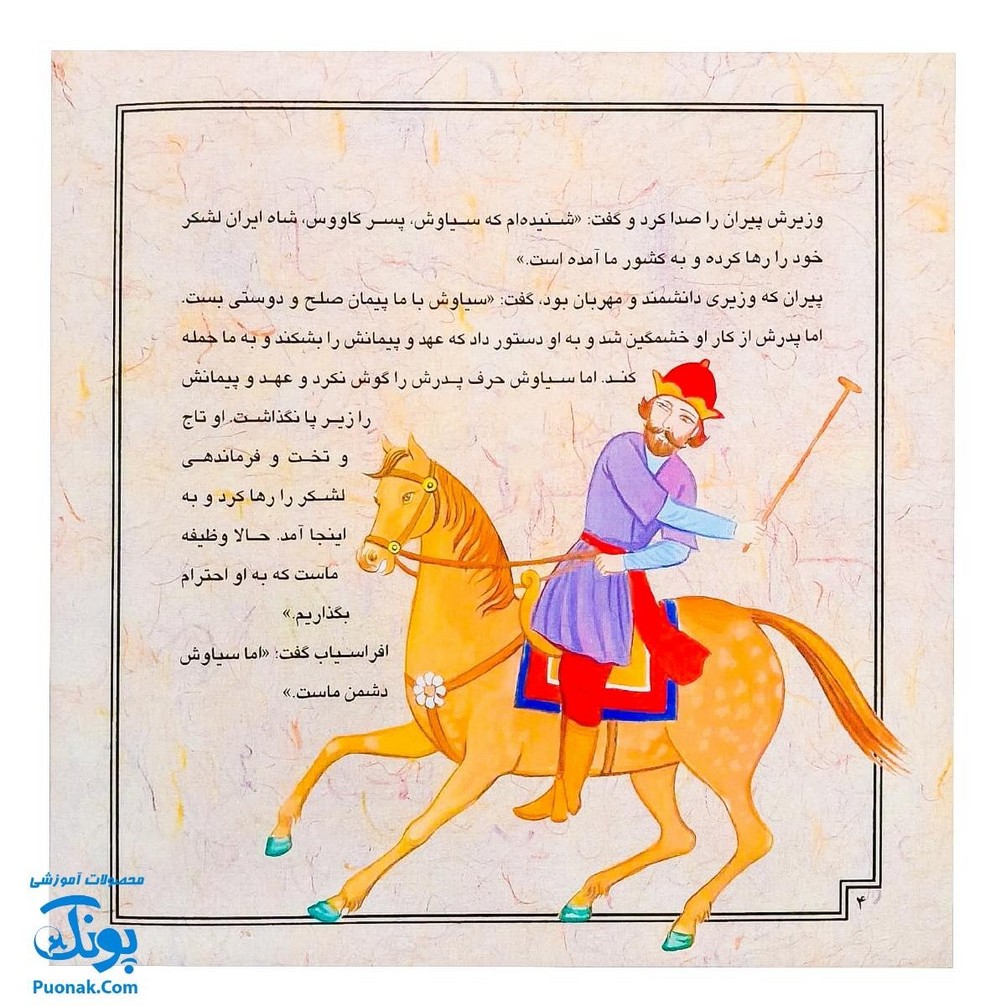 وزیرش پیران را صدا کرد و گفت: «شنیده‌ام که سیاوش، پسر کاووس، شاه ایران لشکر
خود را رها کرده و به کشور ما آمده است.»
پیران که وزیری دانشمند و مهربان بود، گفت: «سیاوش با ما پیمان صلح و دوستی بست.
اما پدرش از کار او خشمگین شد و به او دستور داد که عهد و پیمانش را بشکند و به ما حمله
کند. اما سیاوش حرف پدرش را گوش نکرد و عهد و پیمانش
را زیر پا نگذاشت. او تاج
و تخت و فرماندهی
لشکر را رها کرد و به
اینجا آمد. حالا وظیفه
ماست که به او احترام
بگذاریم.»
افراسیاب گفت: «اما سیاوش
دشمن ماست.»
۴
محصولات آموزشی
پونک
Puonak.Com